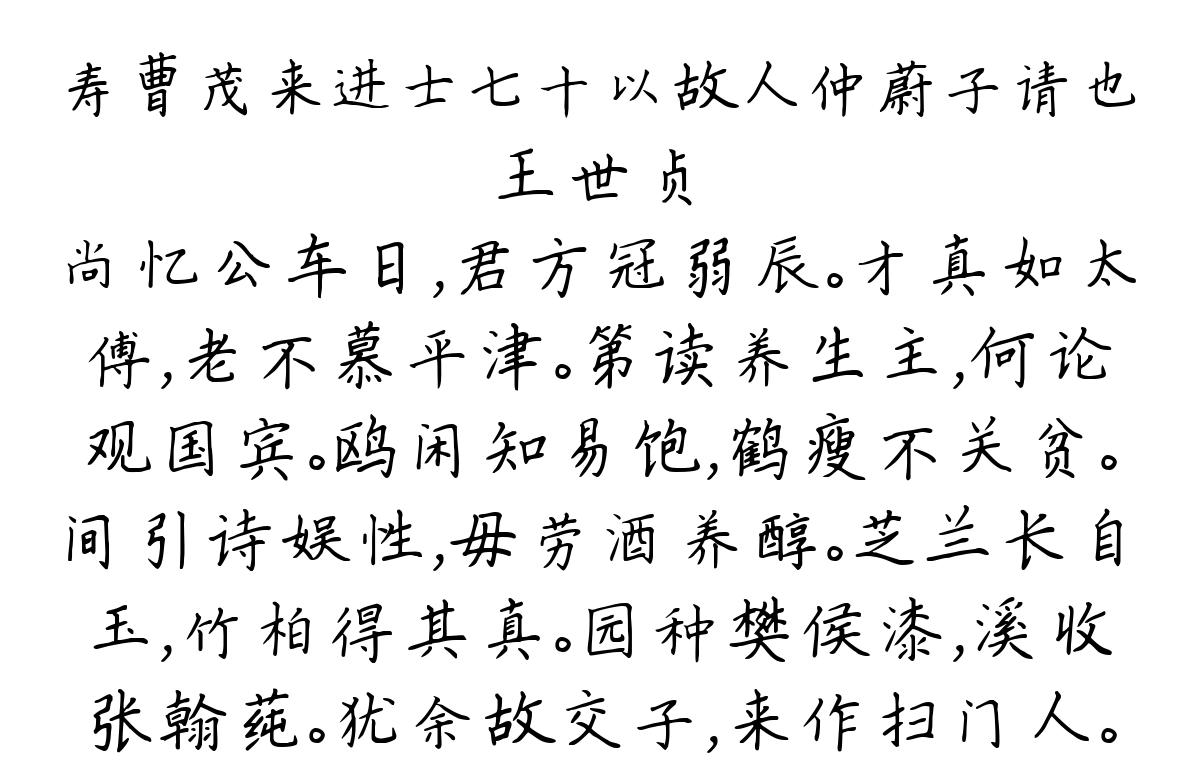 寿曹茂来进士七十以故人仲蔚子请也
王世贞
尚忆公车日,君方冠弱辰。才真如太
傅,老不慕平津。第读养生主,何论
观国宾。鸥闲知易饱,鹤瘦不关贫。
间引诗娱性,毋劳酒养醇。芝兰长自
玉,竹柏得其真。园种樊侯漆,溪收
张翰莼。犹余故交子,来作扫门人。